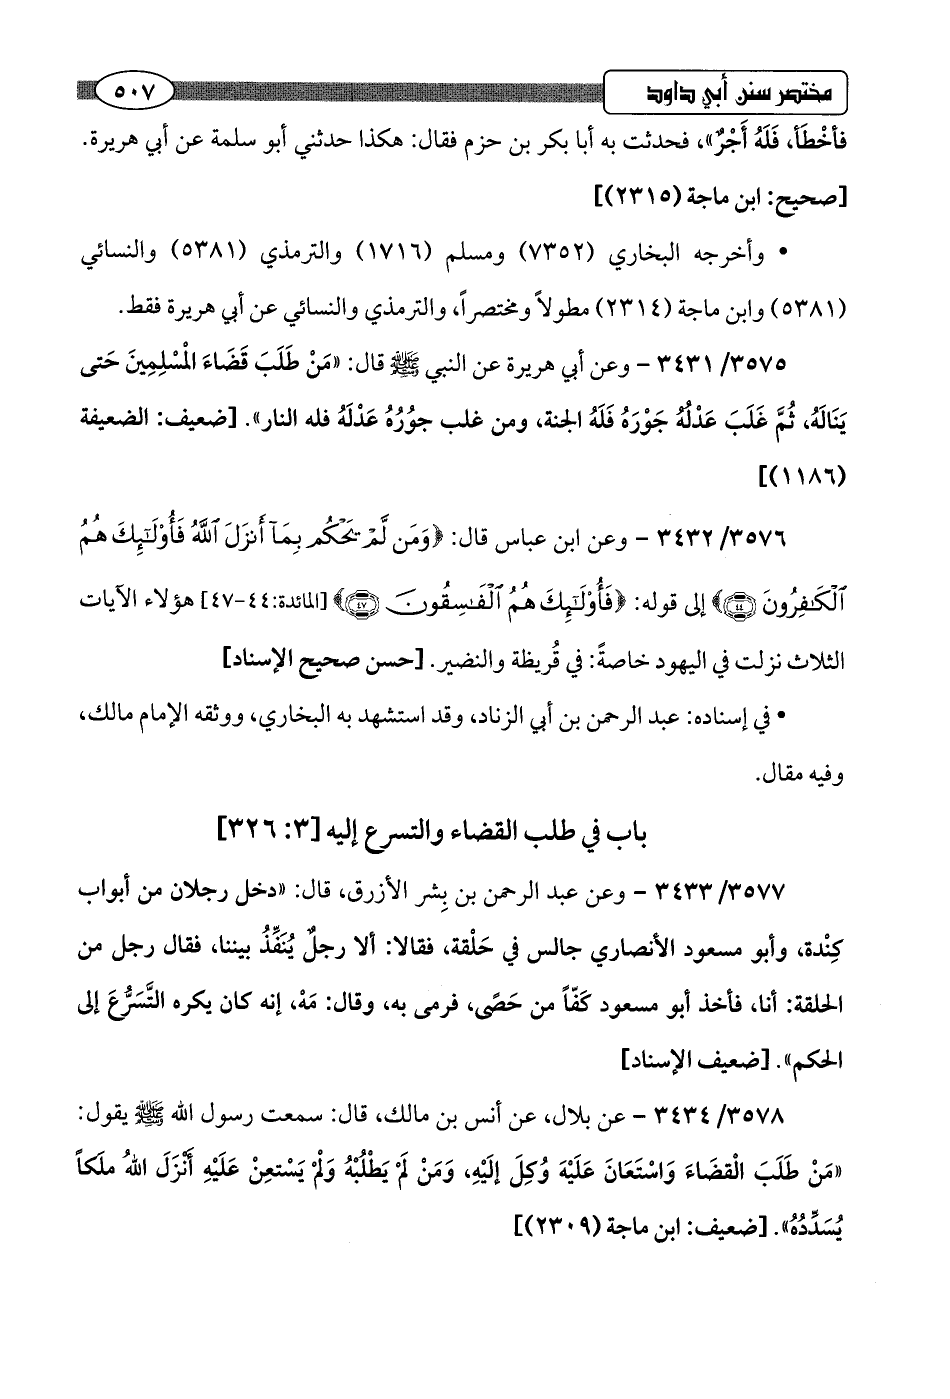 مختصر سنن أبي داود
٥٠٧
فأخْطَأ، فَلَهُ أَجْرٌ»، فحدثت به أبا بكر بن حزم فقال: هكذا حدثني أبو سلمة عن أبي هريرة.
[صحيح: ابن ماجة (٢٣١٥)]
• وأخرجه البخاري (٧٣٥٢) ومسلم (١٧١٦) والترمذي (٥٣٨١) والنسائي
(٥٣٨١) وابن ماجة (٢٣١٤) مطولاً ومختصراً، والترمذي والنسائي عن أبي هريرة فقط.
٣٥٧٥/ ٣٤٣١ – وعن أبي هريرة عن النبي ﷺ قال: «مَنْ طَلَبَ قَضَاءَ الْمُسْلِمِينَ حَتى
يَنَالَهُ، ثُمَّ غَلَبَ عَدْلُهُ جَوْرَهُ فَلَهُ الجنة، ومن غلب جوْرُهُ عَدْلَهُ فله النار». [ضعيف: الضعيفة
(١١٨٦)]
٣٥٧٦/ ٣٤٣٢ – وعن ابن عباس قال: ﴿وَمَن لَّمْ يَحْكُم بِمَآ أَنزَلَ ٱللَّهُ فَأُوْلَـٰٓئِكَ هُمُ
ٱلْكَـٰفِرُونَ ﴿٤٤﴾﴾ إلى قوله: ﴿فَأُوْلَـٰٓئِكَ هُمُ ٱلْفَـٰسِقُونَ ﴿٤٧﴾﴾ [المائدة:٤٤-٤٧] هؤلاء الآيات
الثلاث نزلت في اليهود خاصةً: في قُريظة والنضير. [حسن صحيح الإسناد]
• في إسناده: عبد الرحمن بن أبي الزناد، وقد استشهد به البخاري، ووثقه الإمام مالك،
وفيه مقال.
باب في طلب القضاء والتسرع إليه [٣: ٣٢٦]
٣٥٧٧/ ٣٤٣٣ – وعن عبد الرحمن بن بِشر الأزرق، قال: «دخل رجلان من أبواب
كِنْدة، وأبو مسعود الأنصاري جالس في حَلْقة، فقالا: ألا رجلٌ يُنَفِّذُ بيننا، فقال رجل من
الحلقة: أنا، فأخذ أبو مسعود كَفّاً من حَصًى، فرمى به، وقال: مَهْ، إنه كان يكره التَّسَرُّعَ إلى
الحكم». [ضعيف الإسناد]
٣٥٧٨/ ٣٤٣٤ – عن بلال، عن أنس بن مالك، قال: سمعت رسول الله ﷺ يقول:
«مَنْ طَلَبَ الْقضَاءَ وَاسْتَعَانَ عَلَيْهَ وُكِلَ إلَيْهِ، وَمَنْ لَمْ يَطْلُبْهُ وَلَمْ يَسْتعِنْ عَلَيْهِ أَنْزَلَ اللهُ ملَكاً
يُسَدِّدُهُ». [ضعيف: ابن ماجة (٢٣٠٩)]